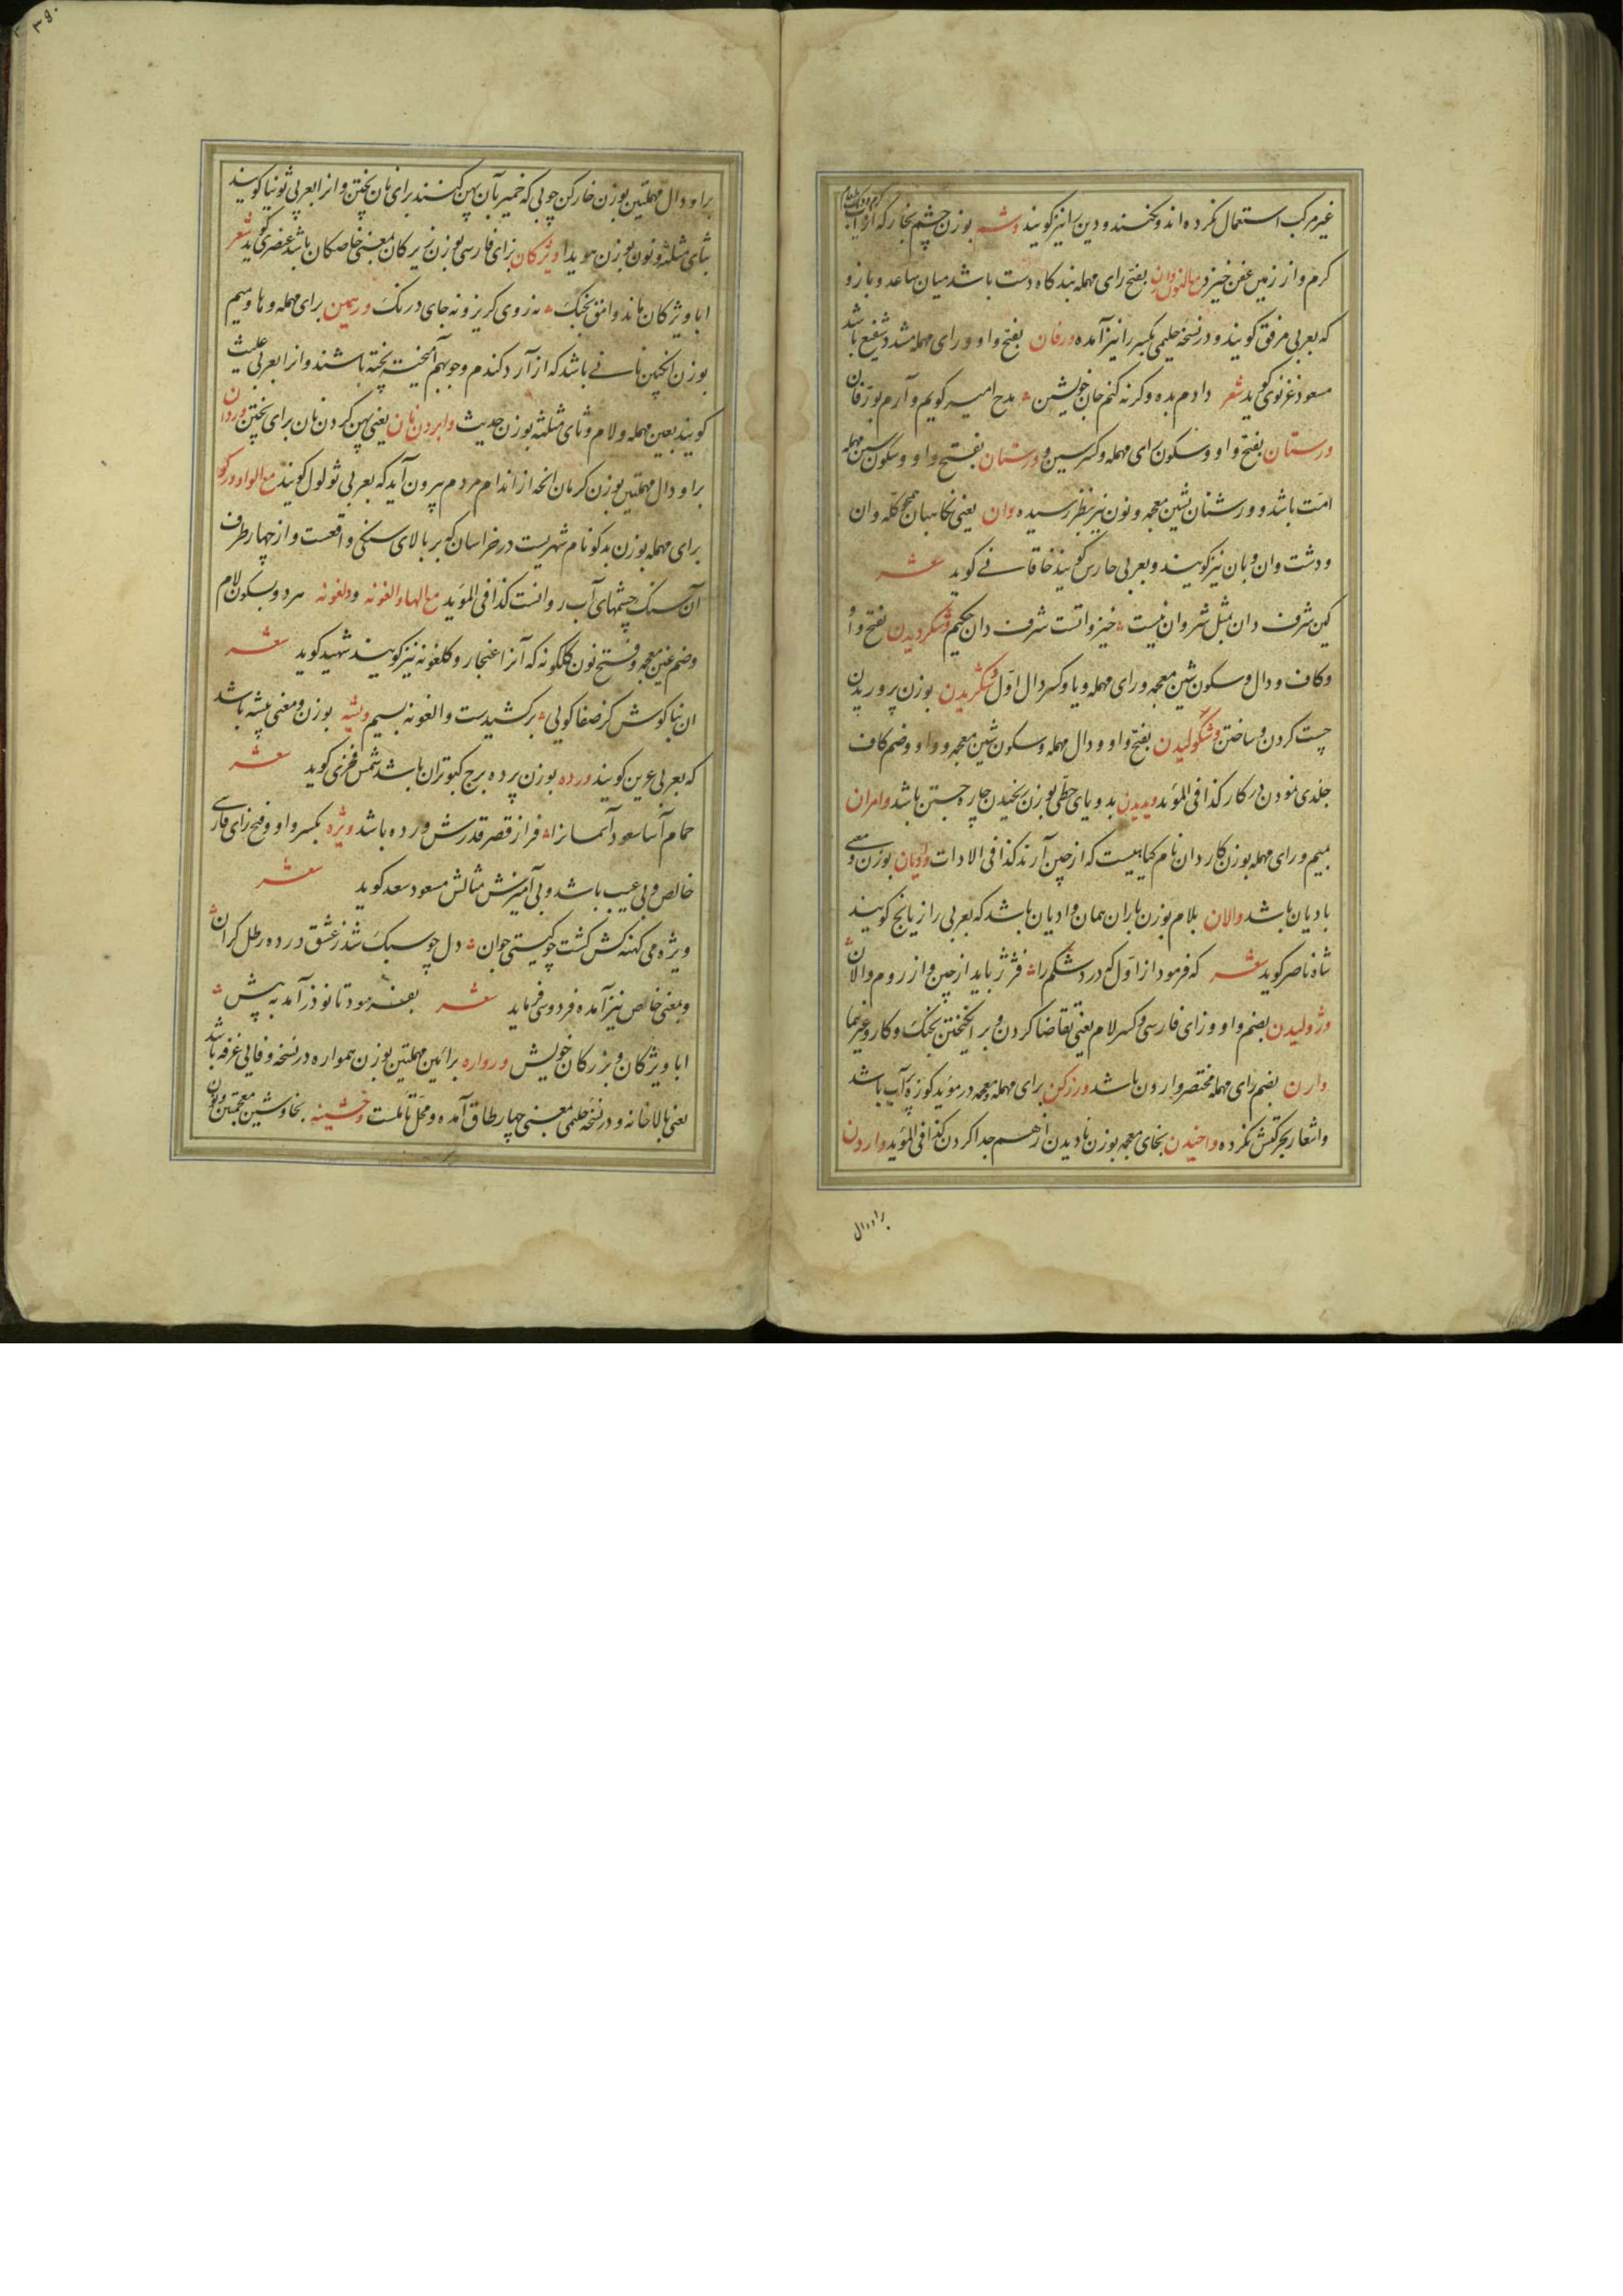 غیر مرکب استعمال نکرده اند و نکنند و دین را نیز گویند وشم بوزن چشم بخار که از آب
گرم و از زمین عفن خیزد مع النون وارن بفتح رای مهمله بندگاه دست باشد میان ساعد و بازو
که بعربی مرفق گویند و در نسخه حلیمی بکسر را نیز آمده ورفان بفتح واو و رای مهمله مشدد شفیع باشد
مسعود غزنوی گوید شعر دادم بده و گرنه کنم جان خویشتن مدح امیر گویم و آرم بورفان
ورستان بفتح واو و سکون رای مهمله و کسر سین و ورشتان بفتح واو و سکون سین مهمله
امت باشد و ورشنان بشین معجمه و نون نیز بنظر رسیده وان یعنی نگاهبان همچو گله وان
و دشت وان و بان نیز گویند و بعربی حارس گویند خاقانی گوید شعر
کین شرف دان بمثل شروان نیست خیز وانست شرف دان حکیم وشکردیدن بفتح واو
و کاف و دال و سکون شین معجمه و رای مهمله و یا و کسر دال اول وشکریدن بوزن پروریدن
چست کردن و ساختن وشکولیدن بفتح واو و دال مهمله و سکون شین معجمه و واو و ضم کاف
جلدی نمودن در کار کذا فی المؤید ویدیدن بدو یای حطی بوزن بخیدن چاره جستن باشد وامران
بمیم و رای مهمله بوزن کاردان نام گیاهیست که از چین آرند کذا فی الادات وادیان بوزن و معنی
بادیان باشد والان بلام بوزن باران همان وادیان باشد که بعربی رازیانج گویند
شاه ناصر گوید شعر که فرمود از اول که درد شکم را فژژ باید از چین و از روم والان
وژولیدن بضم واو و زای فارسی و کسر لام یعنی تقاضا کردن و بر انگیختن بجنگ و کار و غیرها
وارن بضم رای مهمله مختصر وارون باشد ورزکن برای مهمله و معجمه در مؤید کوزه پرآب باشد
و اشعار بحرکتش نکرده واخیدن بخای معجمه بوزن نادیدن از هم جدا کردن کذا فی المؤید واردن
برا و دال
برا و دال مهملتین بوزن خارکن چوبی که خمیر بآن پهن کنند برای نان پختن و انرا بعربی ثونیا گویند
بثای مثلثه و نون بوزن هویدا ویژکان بزای فارسی بوزن زیرکان بمعنی خاصکان باشد عنصری گوید شعر
ابا ویژکان ماند وامق بجنگ نه روی گریز و نه جای درنگ وریمین برای مهمله و ها و میم
بوزن انجین نانی باشد که از آرد گندم و جو بهم آمیخته پخته باشند و انرا بعربی علیث
گویند بعین مهمله و لام و ثای مثلثه بوزن حدیث وابردن نان یعنی پهن کردن نان برای پختن وردان
برا و دال مهملتین بوزن کرمان انچه از اندام مردم بیرون آید که بعربی ثولول گویند مع الواو ورکو
برای مهمله بوزن بدکو نام شهریست در خراسان که بر بالای سنگی واقعست و از چهار طرف
آن سنگ چشمهای آب روانست کذا فی المؤید مع الهاء والغونه و ولغونه هر دو بسکون لام
و ضم غین معجمه و فتح نون گلگونه که آنرا غنجار و کلغونه نیز گویند شهید گوید شعر
ان بناگوش کز صفا گویی برکشیدست والغونه بسیم ویشه بوزن و معنی بیشه باشد
که بعربی عرین گویند ورده بوزن پرده برج کبوتران باشد شمس فخری گوید شعر
حمام آسا سعود آسمانرا فراز قصر قدرش ورده باشد ویژه بکسر واو و فتح زای فارسی
خالص و بی عیب باشد و بی آمیزش مثالش مسعود سعد گوید شعر
ویژه می کهنه کش گشت چو گیتی جوان دل چو سبک شد ز عشق در ده رطل گران
و بمعنی خالص نیز آمده فردوسی فرماید شعر بفرمود تا نوذر آمد به پیش
ابا ویژکان و بزرگان خویش ورواره برائین مهملتین بوزن همواره در نسخه وفایی غرفه باشد
یعنی بالاخانه و در نسخه حلیمی بمعنی چهار طاق آمده و محل تاملست وخشینه بخا و شین معجمتین و نون